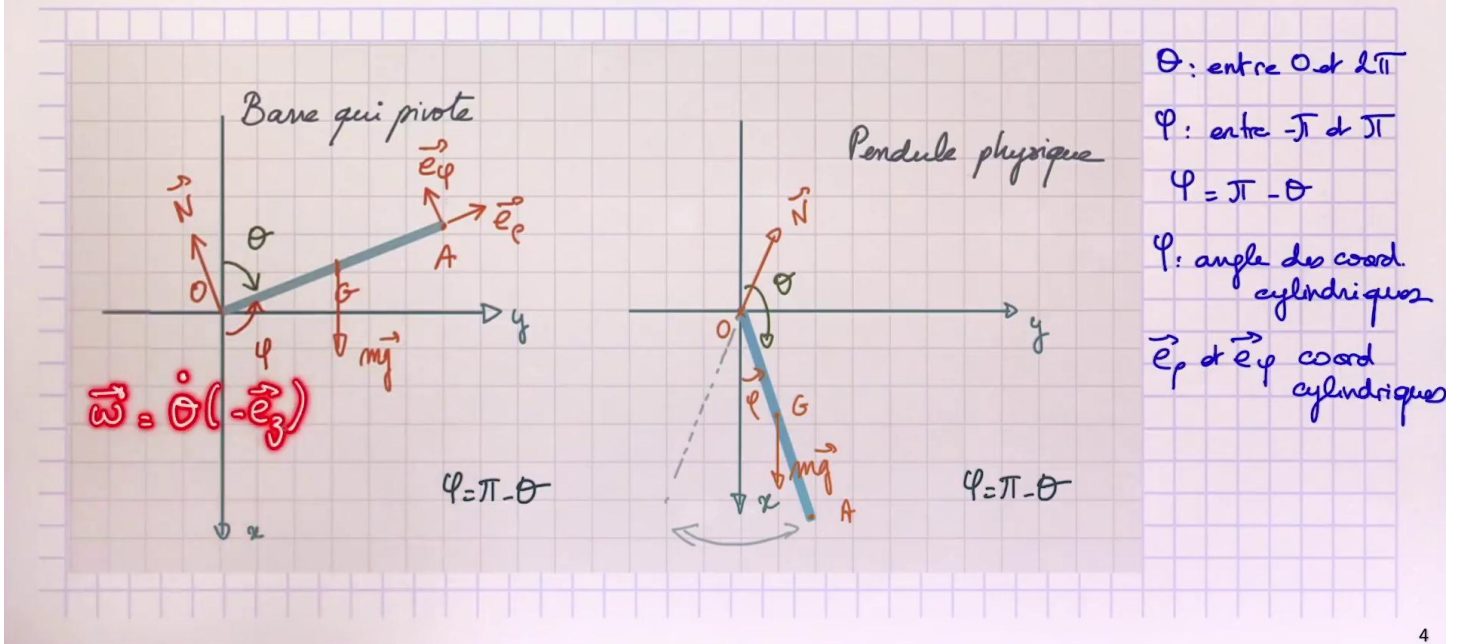 Barre qui pivote
e⃗φ
e⃗ρ
N⃗
θ
A
O
G
y
φ
mg⃗
ω⃗ = θ̇(-e⃗z)
φ=π-θ
x
Pendule physique
N⃗
θ
O
y
φ
G
mg⃗
x
A
φ=π-θ
θ: entre 0 et 2π
φ: entre -π et π
φ = π - θ
φ: angle des coord.
cylindriques
e⃗ρ et e⃗φ coord
cylindriques
4